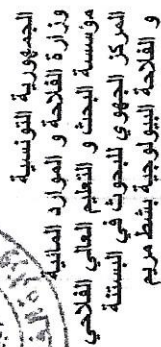 الجمهورية التونسية
وزارة الفلاحة و الموارد المائية
مؤسسة البحث و التعليم العالي الفلاحي
المركز الجهوي للبحوث في البستنة
و الفلاحة البيولوجية بشط مريم